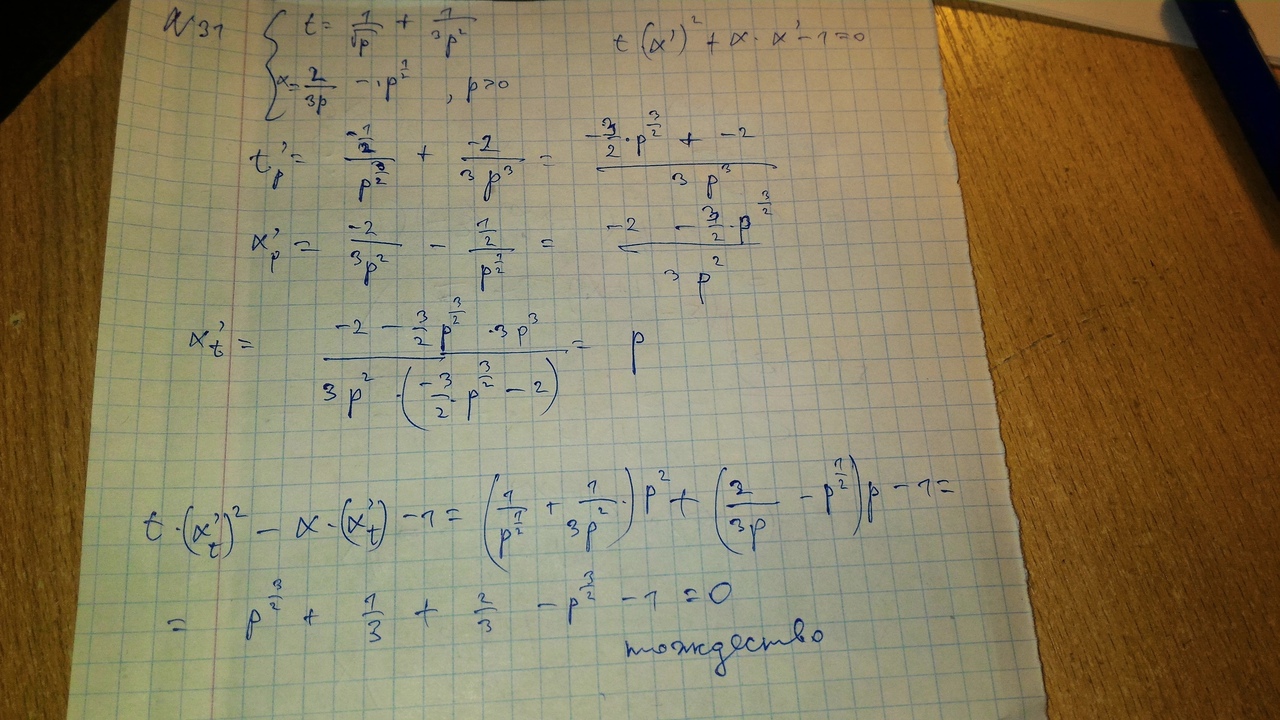 №31 { t = 1/√p + 1/(3p^2) t(x')^2 + x·x' - 1 = 0
x = 2/(3p) - p^(1/2) , p>0
t'_p = (-1/2)/(p^(3/2)) + (-2)/(3p^3) = (-3/2·p^(3/2) + -2)/(3p^3)
x'_p = (-2)/(3p^2) - (1/2)/(p^(1/2)) = (-2 - 3/2·p^(3/2))/(3p^2)
x'_t = (-2 - 3/2 p^(3/2) ·3p^3)/(3p^2·(-3/2·p^(3/2) - 2)) = p
t·(x'_t)^2 - x·(x'_t) - 1 = (1/(p^(1/2)) + 1/(3p^2)·)p^2 + (2/(3p) - p^(1/2))p - 1 =
= p^(3/2) + 1/3 + 2/3 - p^(3/2) - 1 = 0
тождество